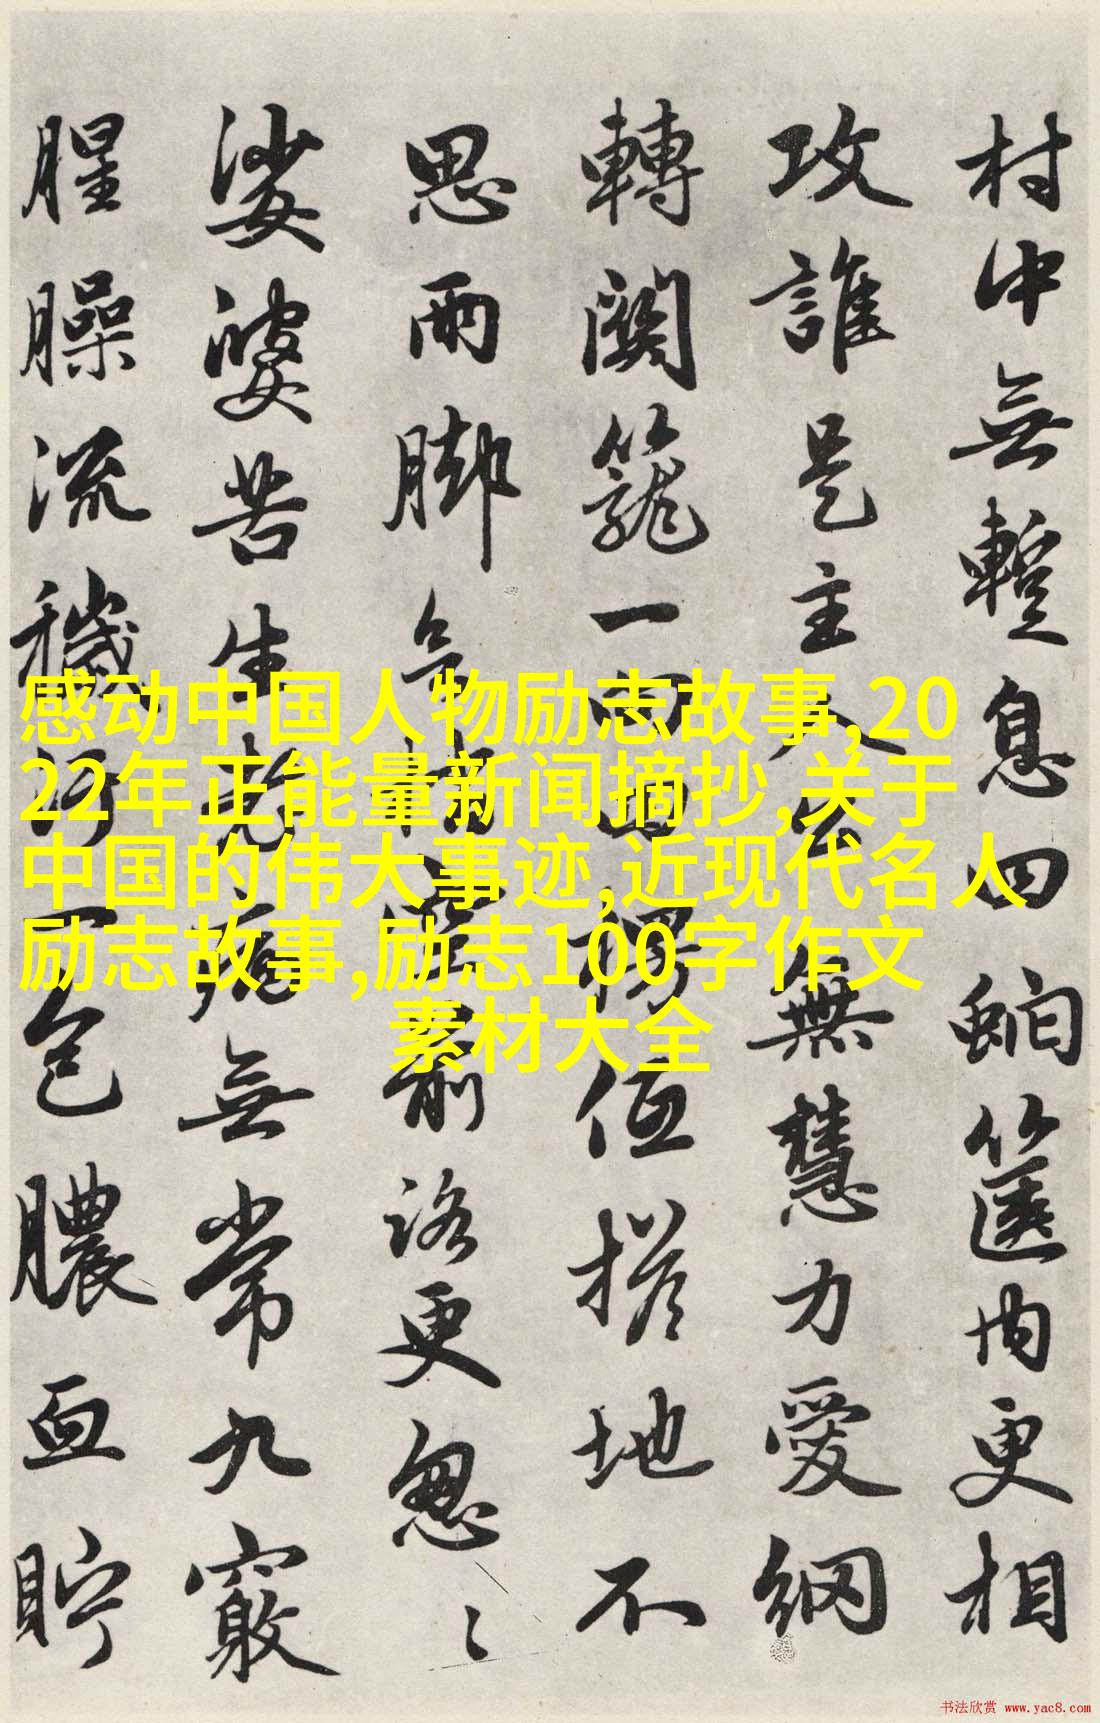 村中無蹔息四虵篋内更相
攻誰是主人公無慧力愛網
轉關籠一地不
思雨脚前路更忽〻
娑婆苦生老病無常九竅
腥臊流穢污一包膿血貯
感动中国人物励志故事,20
22年正能量新闻摘抄,关于
中国的伟大事迹,近现代名人
励志故事,励志100字作文
素材大全
书法欣赏 www.yac8.com